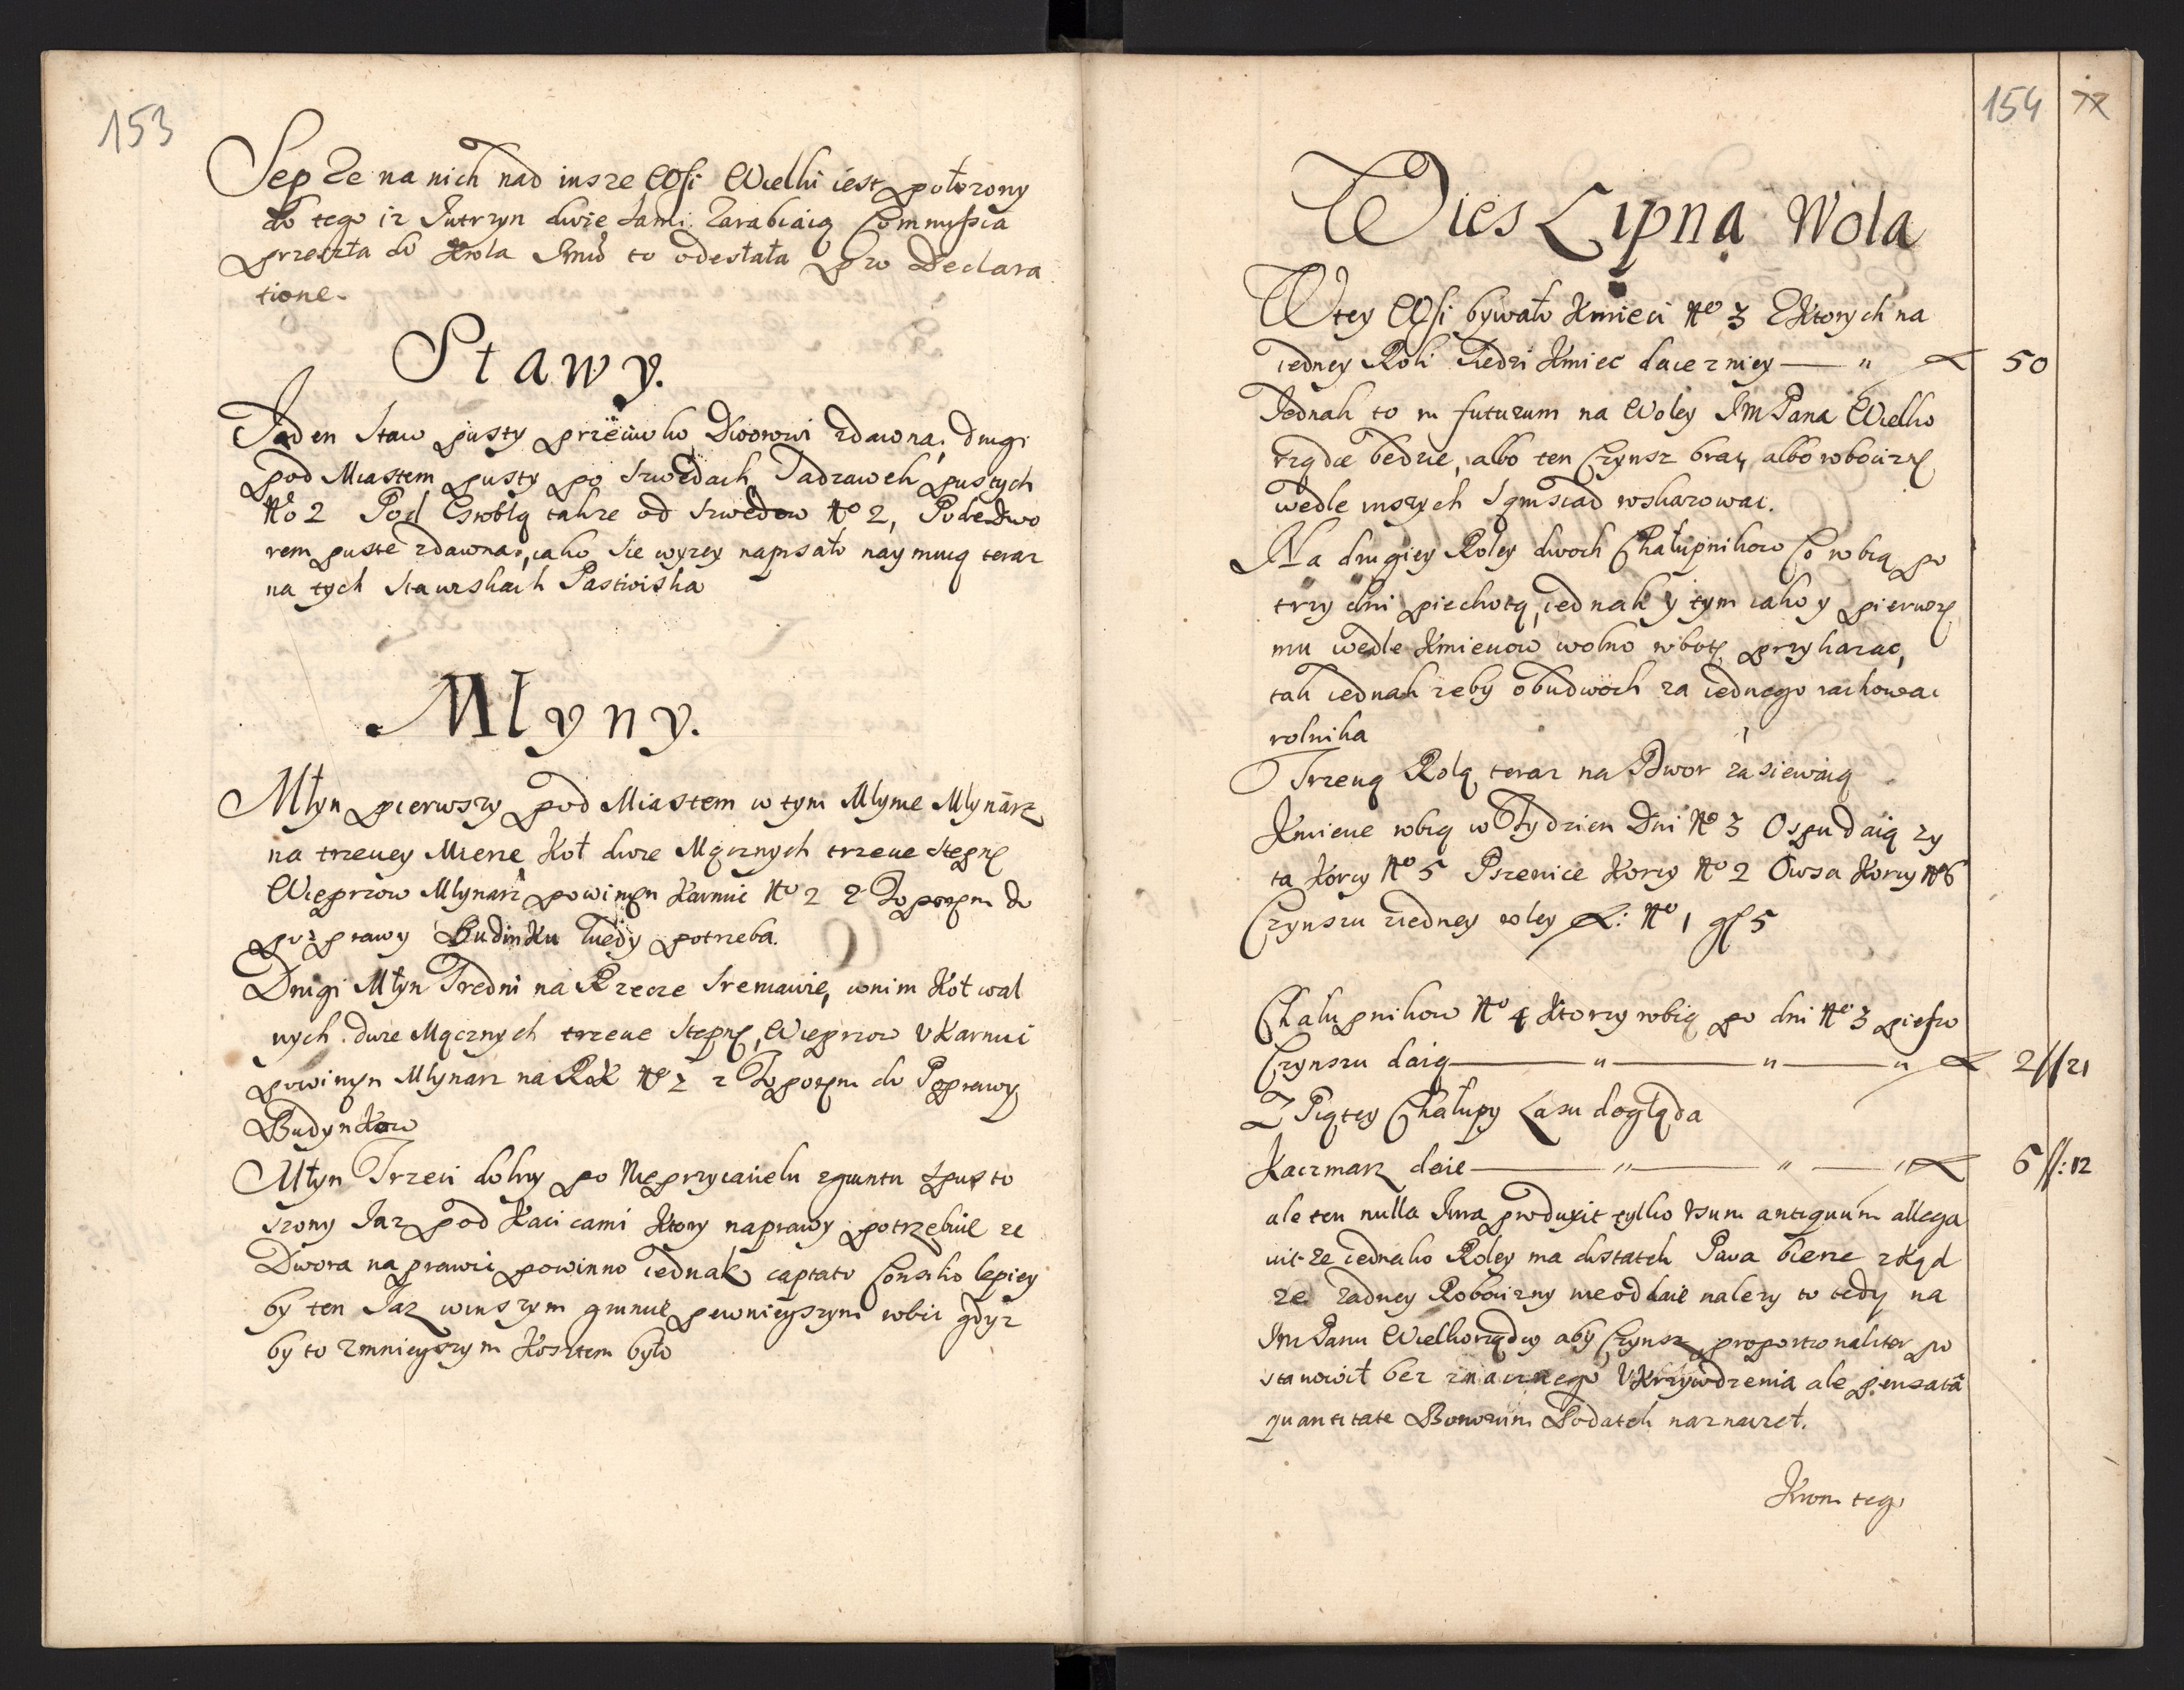 153
Sep Ze na nich nad insze Wsi Wielki iest połozony
do tego iz Jutrzyn dwie sami Zarabiaią Commyssia
przeszła do Krola Jmci to odesłała pro Declara
tione.
Stawy.
Jeden Staw pusty przeciwko Dworowi zdawna, drugi
pod Miastem pusty po Szwedach Sadzawek pustych
No 2 Pod Groblą takze od Szwedow No 2, Pode Dwo
rem puste zdawna, iako sie wyzey napisało naymuią teraz
na tych Stawiskach Pastwiska
Mlyny.
Młyn pierwszy pod Miastem w tym Mlynie Mlynarz
na trzeciey Mierze Kół dwie Mącznych trzecie Stępne
Wieprzow Mlynarz powinien Karmic No 2 Z Toporem do
poprawy Budinku kiedy potrzeba.
Drugi Młyn Sredni na Rzecze Sreniawie, w nim Kół wal
nych dwie Mącznych trzecie Stępne, Wieprzow Vkarmic
powinien Mlynarz na Rok No 2 z Toporem do Poprawy
Budynkow
Młyn Trzeci dolny po Nieprzyiacielu zgruntu spusto
szony Jaz pod Kaci cami Ktory naprawy potrzebuie ze
Dwora naprawic powinno iednak captato Consilio lepiey
by ten Jaz w inszym gruncie pewnieyszym robic gdyz
by to z mnieyszym Kosztem było
154 77
Wies Lipna Wola
W tey Wsi bywało Kmieci No 3 Z Ktorych na
iedney Roli Siedzi Kmiec daie z niey — " 50
Jednak to in futurum na Woley JM Pana Wielko
rządce będzie, albo ten Czynsz brac, albo robociznę
wedle inszych Sąmsiad wskazowac.
Na drugiey Roley dwoch Chałupnikow Co robią po
trzy dni piechotą, iednak y tym iako y pierwsze
mu wedle Kmieciow wolno robotę przykazac,
tak iednak zeby obudwoch za iednego rachowac
rolnika
Trzecią Rolą teraz na Dwor zasiewaią
Kmiecie robią w Tydzien Dni No 3 Ospu daią zy
ta Korcy No 5 Pszenice Korcy No 2 Owsa Korcy No 6
Czynszu z iedney roley No 1 gr 5
Chałupnikow No 4 Ktorzy robią po dni No 3 pieszo
Czynszu daią — " — " — " 2//21
Z Piątey Chałupy Lasu dogląda
Kaczmarz daie — " — " — " 6//:12
ale ten nulla Jura produxit tylko Vsum antiquum allega
uit ze iednako Roley ma dostatek Piwa bierze zkąd
ze zadney Robocizny nie oddaie nalezy to tedy na
Jm Panu Wielkorządcy aby Czynsz proportionaliter po
stanowił bez znacznego Vkrzywdzenia ale pensata
quantitate Bonorum Podatek naznaczeł.
Krom tego